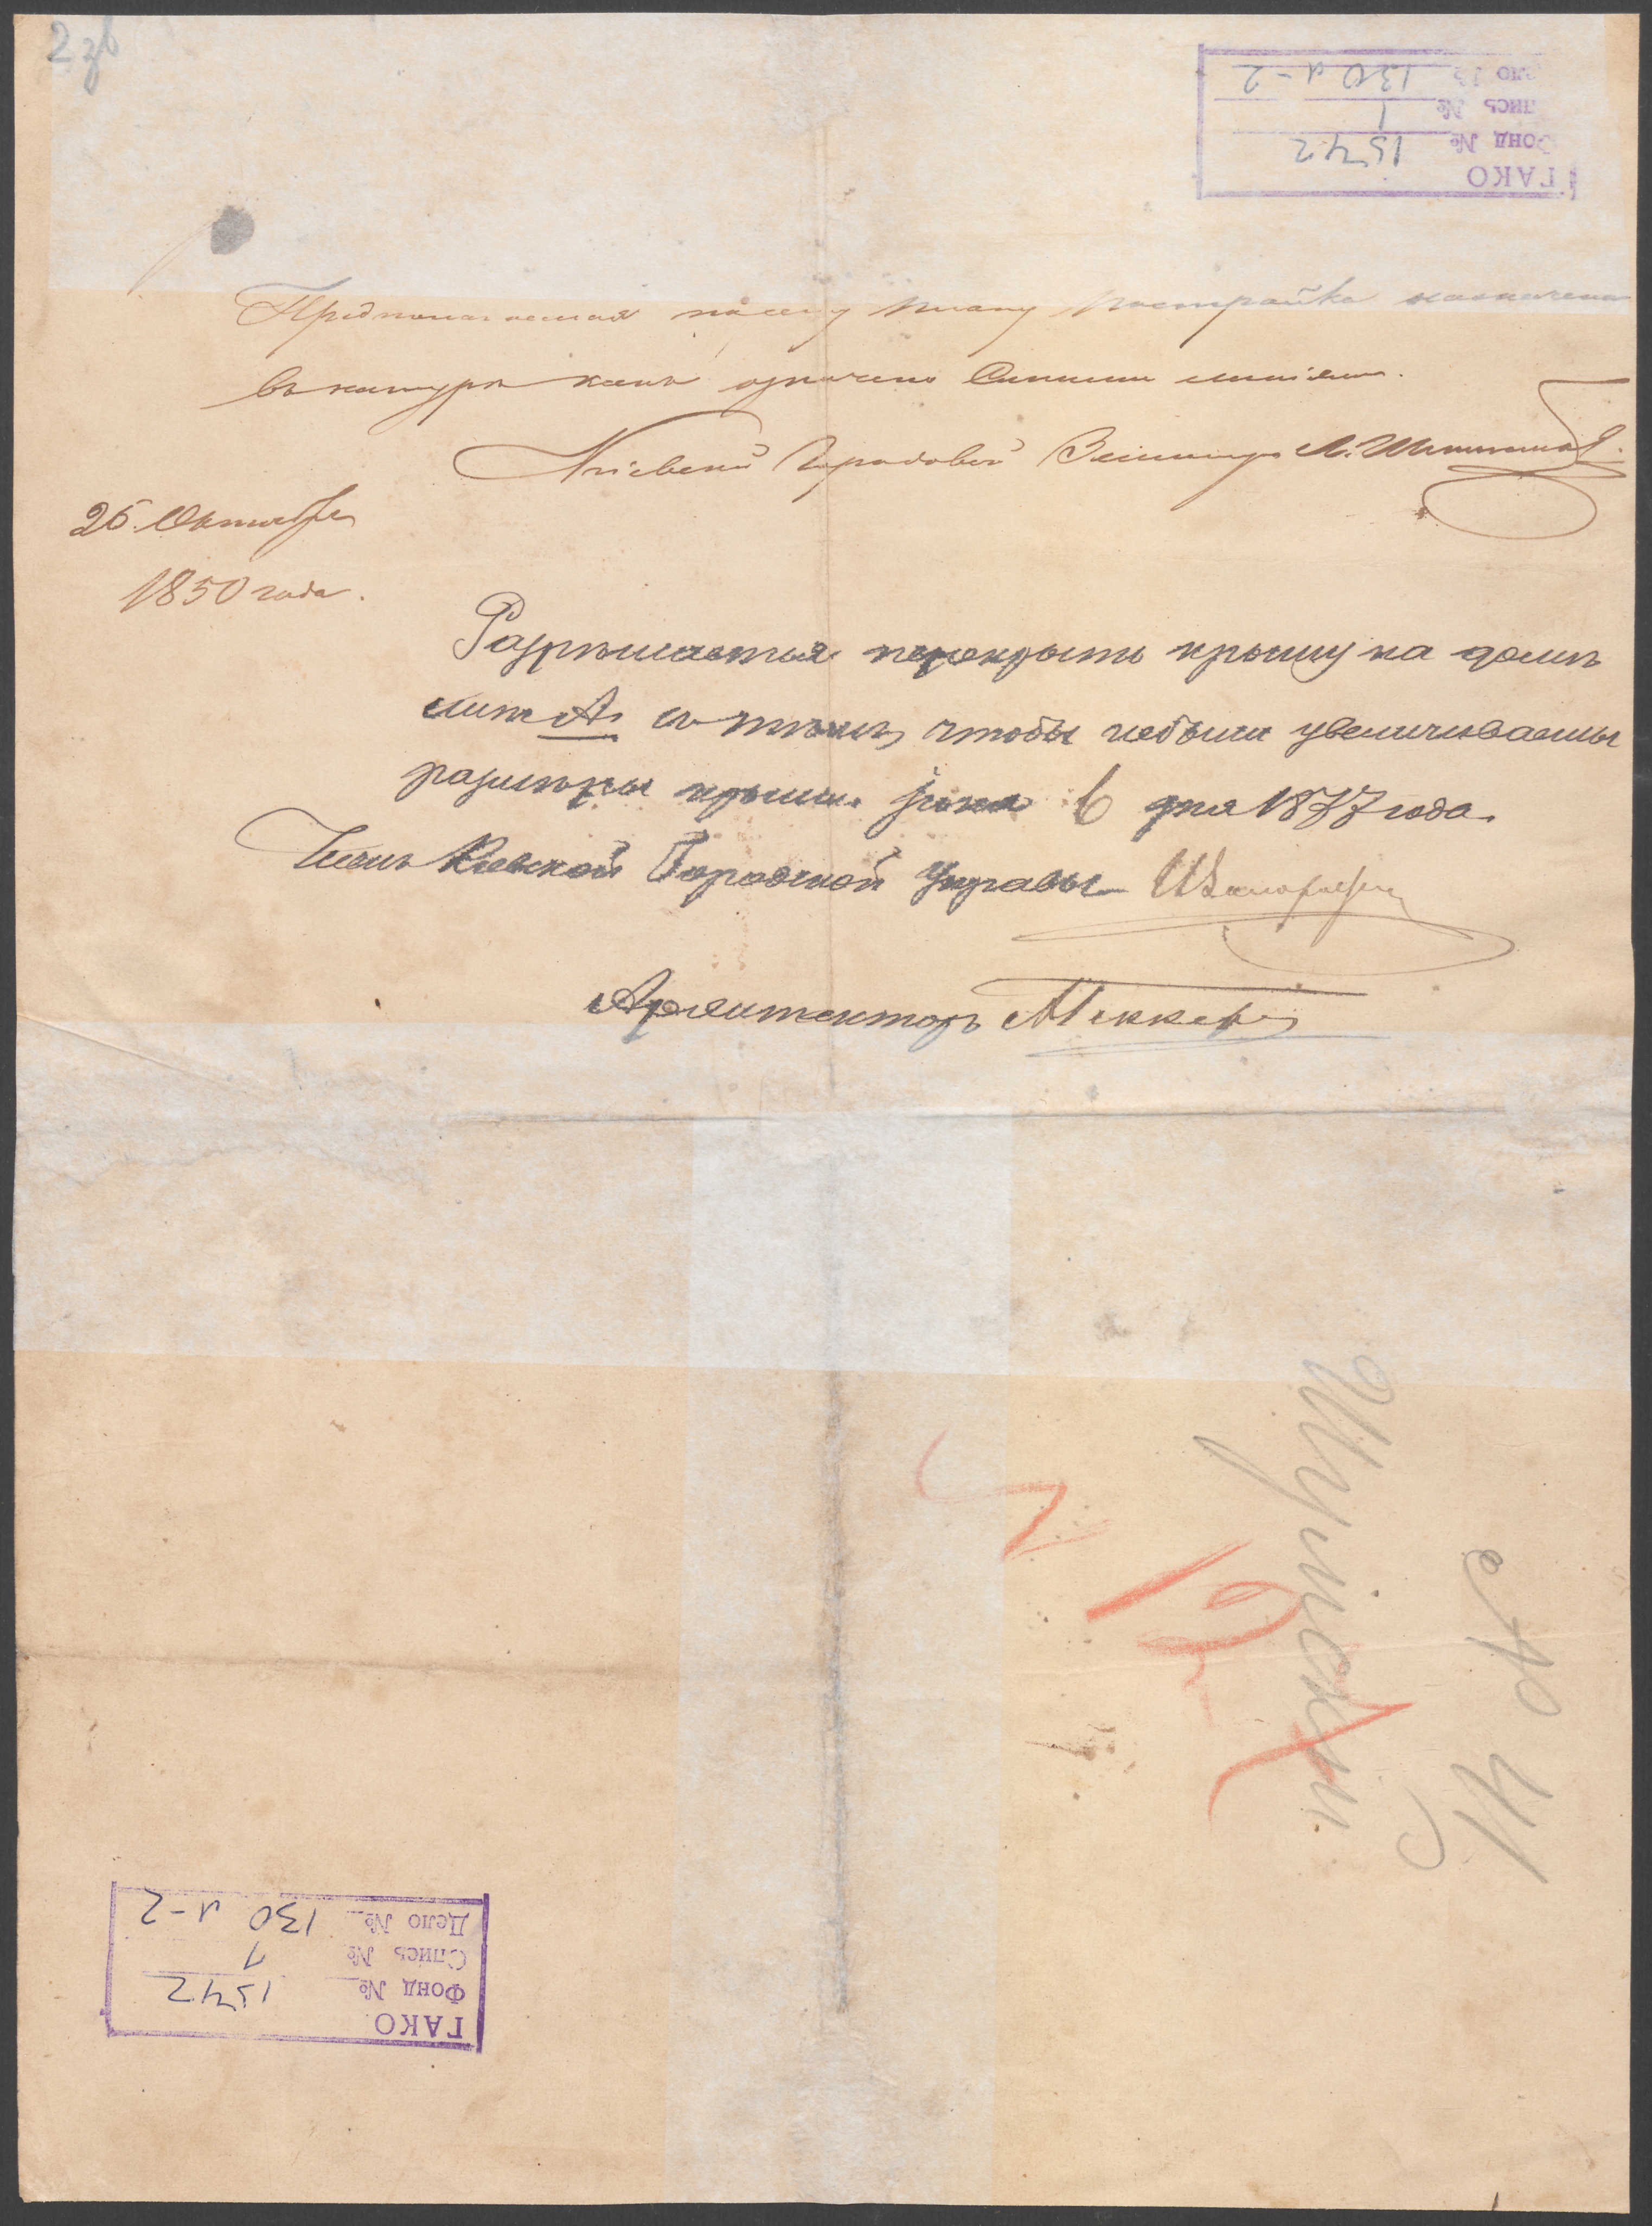 2 зв
ГАКО
Фонд № 1542
пись № 1
ело № 130 л-2
Предполагаемая по сему плану постройка назначена
въ натурѣ какъ означено Синими линіями.
Кіевскій Городовой Землемѣръ
26 Октября
1850 года.
Разрѣшается перекрыть крышу на домѣ
лит А. съ тѣмъ, чтобы небыли увеличиваемы
размѣры крыши. Іюня 6 дня 1877 года.
Членъ Кіевской Городской Управы
Архитекторъ
№ 19
ГАКО
Фонд № 1542
Опись № 1
Дело № 130 л-2